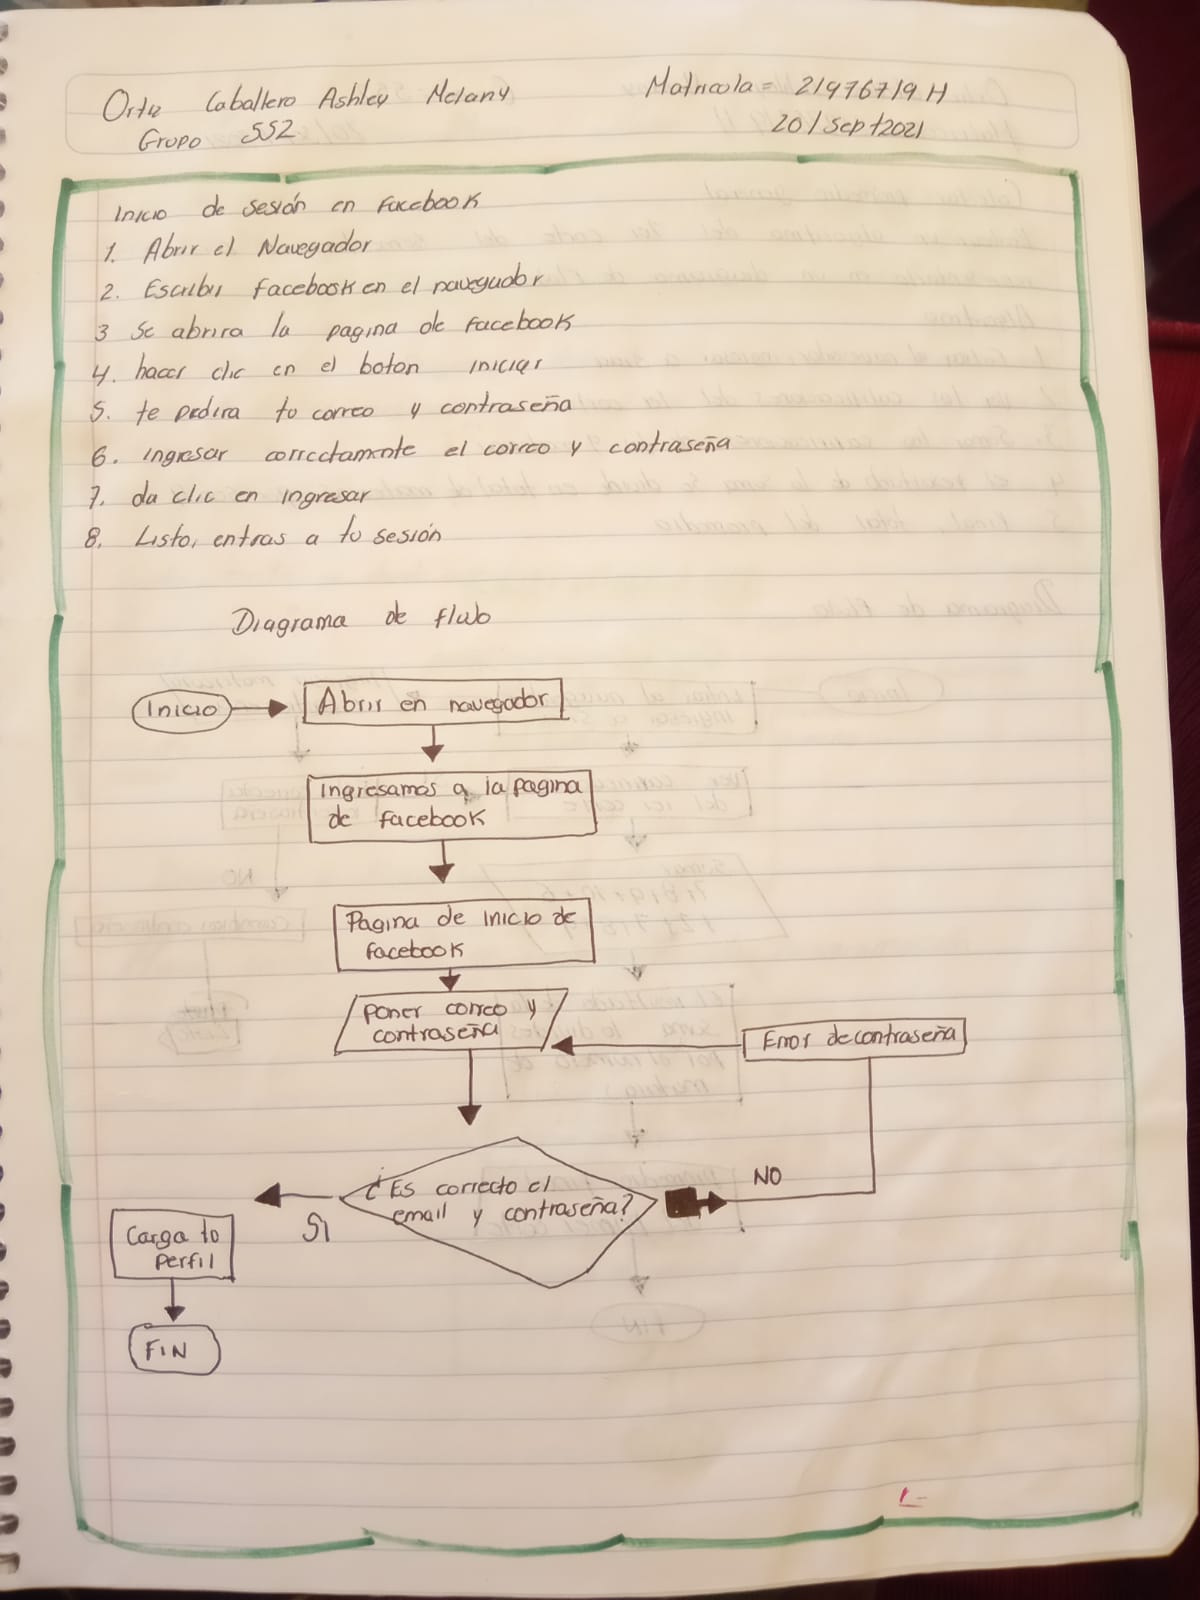 Ortiz Caballero Ashley Melany
Matricola = 21976719 H
Grupo 552
20/Sept2021
Inicio de sesión en Facebook
1. Abrir el Navegador
2. Escribir facebook en el navegador
3 Se abrira la pagina de facebook
4. hacer clic en el boton iniciar
5. te pedira tu correo y contraseña
6. ingresar correctamente el correo y contraseña
7. da clic en ingresar
8. Listo, entras a tu sesión
Diagrama de flujo
Inicio
Abrir en navegador
Ingresamos a la pagina
de facebook
Pagina de inicio de
facebook
Poner correo y
contraseña
Error de contraseña
¿Es correcto el
email y contraseña?
NO
SI
Carga tu
perfil
FIN